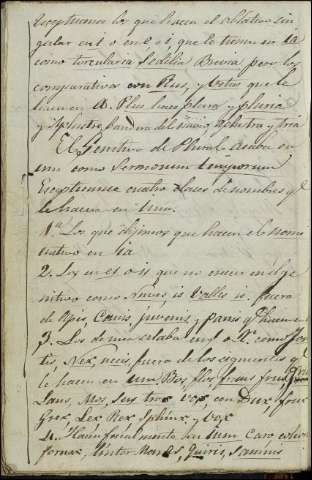 Exceptuanse los que hacen el ablativo sin
gular en i o en e, i, que lo tienen en ia
como torcularia Sedilia Brevia pero los
comparativos con Plus, y Vetus que le
hacen en A. Plus hace plura y pluria
y Aplustre Aplustra y tria
El Genitivo de Plural Acaba en
um como Sermonum temporum
Exceptuanse cuatro clases de nombres q.e
le hacen en ium.
1.a Los que digimos que hacen el nomi
nativo en ia
2. Los en es o is que no crecen en el ge
nitivo como is Valles is. fuera
de Apis, Canis, juvenis, Panis y
3. Los de una silaba en s o X. como
Nox, noctis fuera de los siguientes q.e
le hacen en um Bos, flos fraus
Laus, Mos, Sus vox, con Dux
Grex, Lex, Rex Sphinx, y Vox
4. Hacen finalmente en ium Caro
fornax, Linter Quiris, Samnis